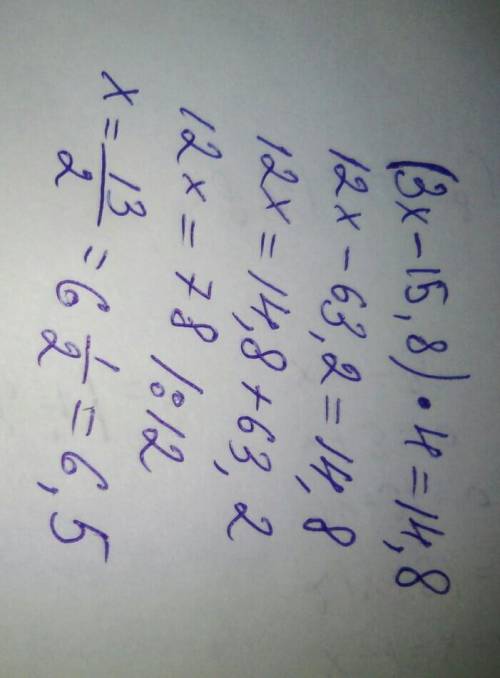 (3x-15,8)•4=14,8
12x-63,2=14,8
12x=14,8+63,2
12x=78 /:12
x=13/2=6 1/2=6,5